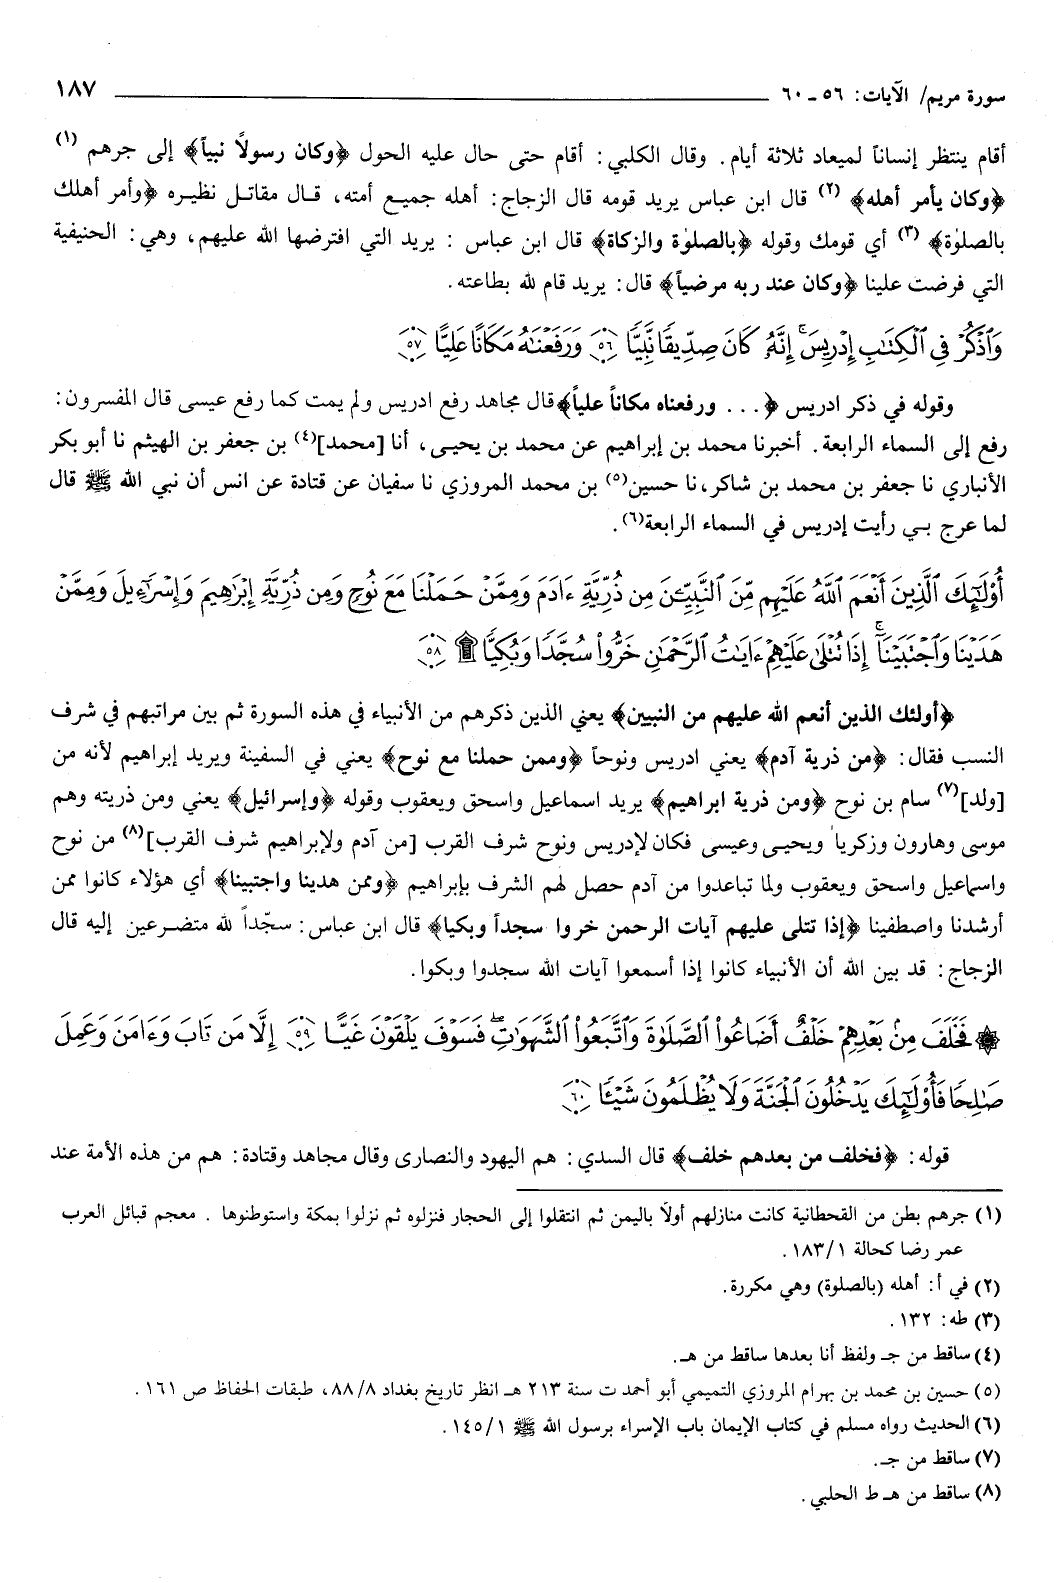 سورة مريم/ الآيات: ٥٦ ـ ٦٠ ١٨٧
أقام ينتظر إنساناً لميعاد ثلاثة أيام. وقال الكلبي: أقام حتى حال عليه الحول ﴿وكان رسولاً نبياً﴾ إلى جرهم (١)
﴿وكان يأمر أهله﴾ (٢) قال ابن عباس يريد قومه قال الزجاج: أهله جميع أمته، قال مقاتل نظيره ﴿وأمر أهلك
بالصلوٰة﴾ (٣) أي قومك وقوله ﴿بالصلوٰة والزكاة﴾ قال ابن عباس : يريد التي افترضها الله عليهم، وهي: الحنيفية
التي فرضت علينا ﴿وكان عند ربه مرضياً﴾ قال: يريد قام لله بطاعته.
وَٱذْكُرْ فِى ٱلْكِتَٰبِ إِدْرِيسَ ۚ إِنَّهُۥ كَانَ صِدِّيقًا نَّبِيًّا ﴿٥٦﴾ وَرَفَعْنَٰهُ مَكَانًا عَلِيًّا ﴿٥٧﴾
وقوله في ذكر ادريس ﴿... ورفعناه مكاناً علياً﴾ قال مجاهد رفع ادريس ولم يمت كما رفع عيسى قال المفسرون:
رفع إلى السماء الرابعة. أخبرنا محمد بن إبراهيم عن محمد بن يحيى، أنا [محمد](٤) بن جعفر بن الهيثم نا أبو بكر
الأنباري نا جعفر بن محمد بن شاكر، نا حسين(٥) بن محمد المروزي نا سفيان عن قتادة عن انس أن نبي الله ﷺ قال
لما عرج بي رأيت إدريس في السماء الرابعة(٦).
أُو۟لَٰٓئِكَ ٱلَّذِينَ أَنْعَمَ ٱللَّهُ عَلَيْهِم مِّنَ ٱلنَّبِيِّـۧنَ مِن ذُرِّيَّةِ ءَادَمَ وَمِمَّنْ حَمَلْنَا مَعَ نُوحٍ وَمِن ذُرِّيَّةِ إِبْرَٰهِيمَ وَإِسْرَٰٓءِيلَ وَمِمَّنْ
هَدَيْنَا وَٱجْتَبَيْنَآ ۚ إِذَا تُتْلَىٰ عَلَيْهِمْ ءَايَٰتُ ٱلرَّحْمَٰنِ خَرُّوا۟ سُجَّدًا وَبُكِيًّا ۩ ﴿٥٨﴾
﴿أولئك الذين أنعم الله عليهم من النبيين﴾ يعني الذين ذكرهم من الأنبياء في هذه السورة ثم بين مراتبهم في شرف
النسب فقال: ﴿من ذرية آدم﴾ يعني ادريس ونوحاً ﴿وممن حملنا مع نوح﴾ يعني في السفينة ويريد إبراهيم لأنه من
[ولد](٧) سام بن نوح ﴿ومن ذرية ابراهيم﴾ يريد اسماعيل واسحق ويعقوب وقوله ﴿وإسرائيل﴾ يعني ومن ذريته وهم
موسى وهارون وزكريا ويحيى وعيسى فكان لإدريس ونوح شرف القرب [من آدم ولإبراهيم شرف القرب](٨) من نوح
واسماعيل واسحق ويعقوب ولما تباعدوا من آدم حصل لهم الشرف بإبراهيم ﴿وممن هدينا واجتبينا﴾ أي هؤلاء كانوا ممن
أرشدنا واصطفينا ﴿إذا تتلى عليهم آيات الرحمن خروا سجداً وبكيا﴾ قال ابن عباس: سجّداً لله متضرعين إليه قال
الزجاج: قد بين الله أن الأنبياء كانوا إذا أسمعوا آيات الله سجدوا وبكوا.
۞ فَخَلَفَ مِنۢ بَعْدِهِمْ خَلْفٌ أَضَاعُوا۟ ٱلصَّلَوٰةَ وَٱتَّبَعُوا۟ ٱلشَّهَوَٰتِ ۖ فَسَوْفَ يَلْقَوْنَ غَيًّا ﴿٥٩﴾ إِلَّا مَن تَابَ وَءَامَنَ وَعَمِلَ
صَٰلِحًا فَأُو۟لَٰٓئِكَ يَدْخُلُونَ ٱلْجَنَّةَ وَلَا يُظْلَمُونَ شَيْـًٔا ﴿٦٠﴾
قوله: ﴿فخلف من بعدهم خلف﴾ قال السدي: هم اليهود والنصارى وقال مجاهد وقتادة: هم من هذه الأمة عند
(١) جرهم بطن من القحطانية كانت منازلهم أولاً باليمن ثم انتقلوا إلى الحجار فنزلوه ثم نزلوا بمكة واستوطنوها . معجم قبائل العرب
عمر رضا كحالة ١/ ١٨٣.
(٢) في أ: أهله (بالصلوة) وهي مكررة.
(٣) طه: ١٣٢.
(٤) ساقط من جـ ولفظ أنا بعدها ساقط من هـ.
(٥) حسين بن محمد بن بهرام المروزي التميمي أبو أحمد ت سنة ٢١٣ هـ انظر تاريخ بغداد ٨/ ٨٨، طبقات الحفاظ ص ١٦١.
(٦) الحديث رواه مسلم في كتاب الإيمان باب الإسراء برسول الله ﷺ ١/ ١٤٥.
(٧) ساقط من جـ.
(٨) ساقط من هـ ط الحلبي.